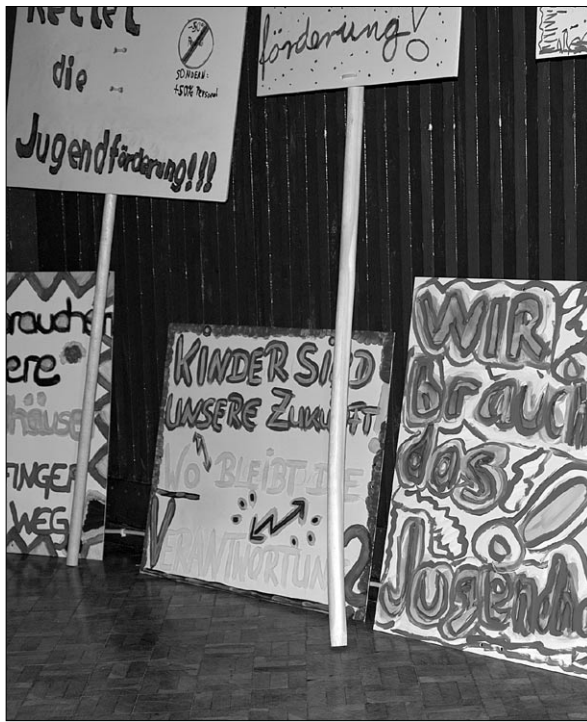 Rettet
die
Jugendförderung!!!
-50%
SONDERN:
+50% Personal
förderung!
brauchen
ere
häuser
FINGER
WEG
KINDER SIND
UNSERE ZUKUNFT
WO BLEIBT DIE
VERANTWORTUNG?
WIR
brauch
das
Jugendh